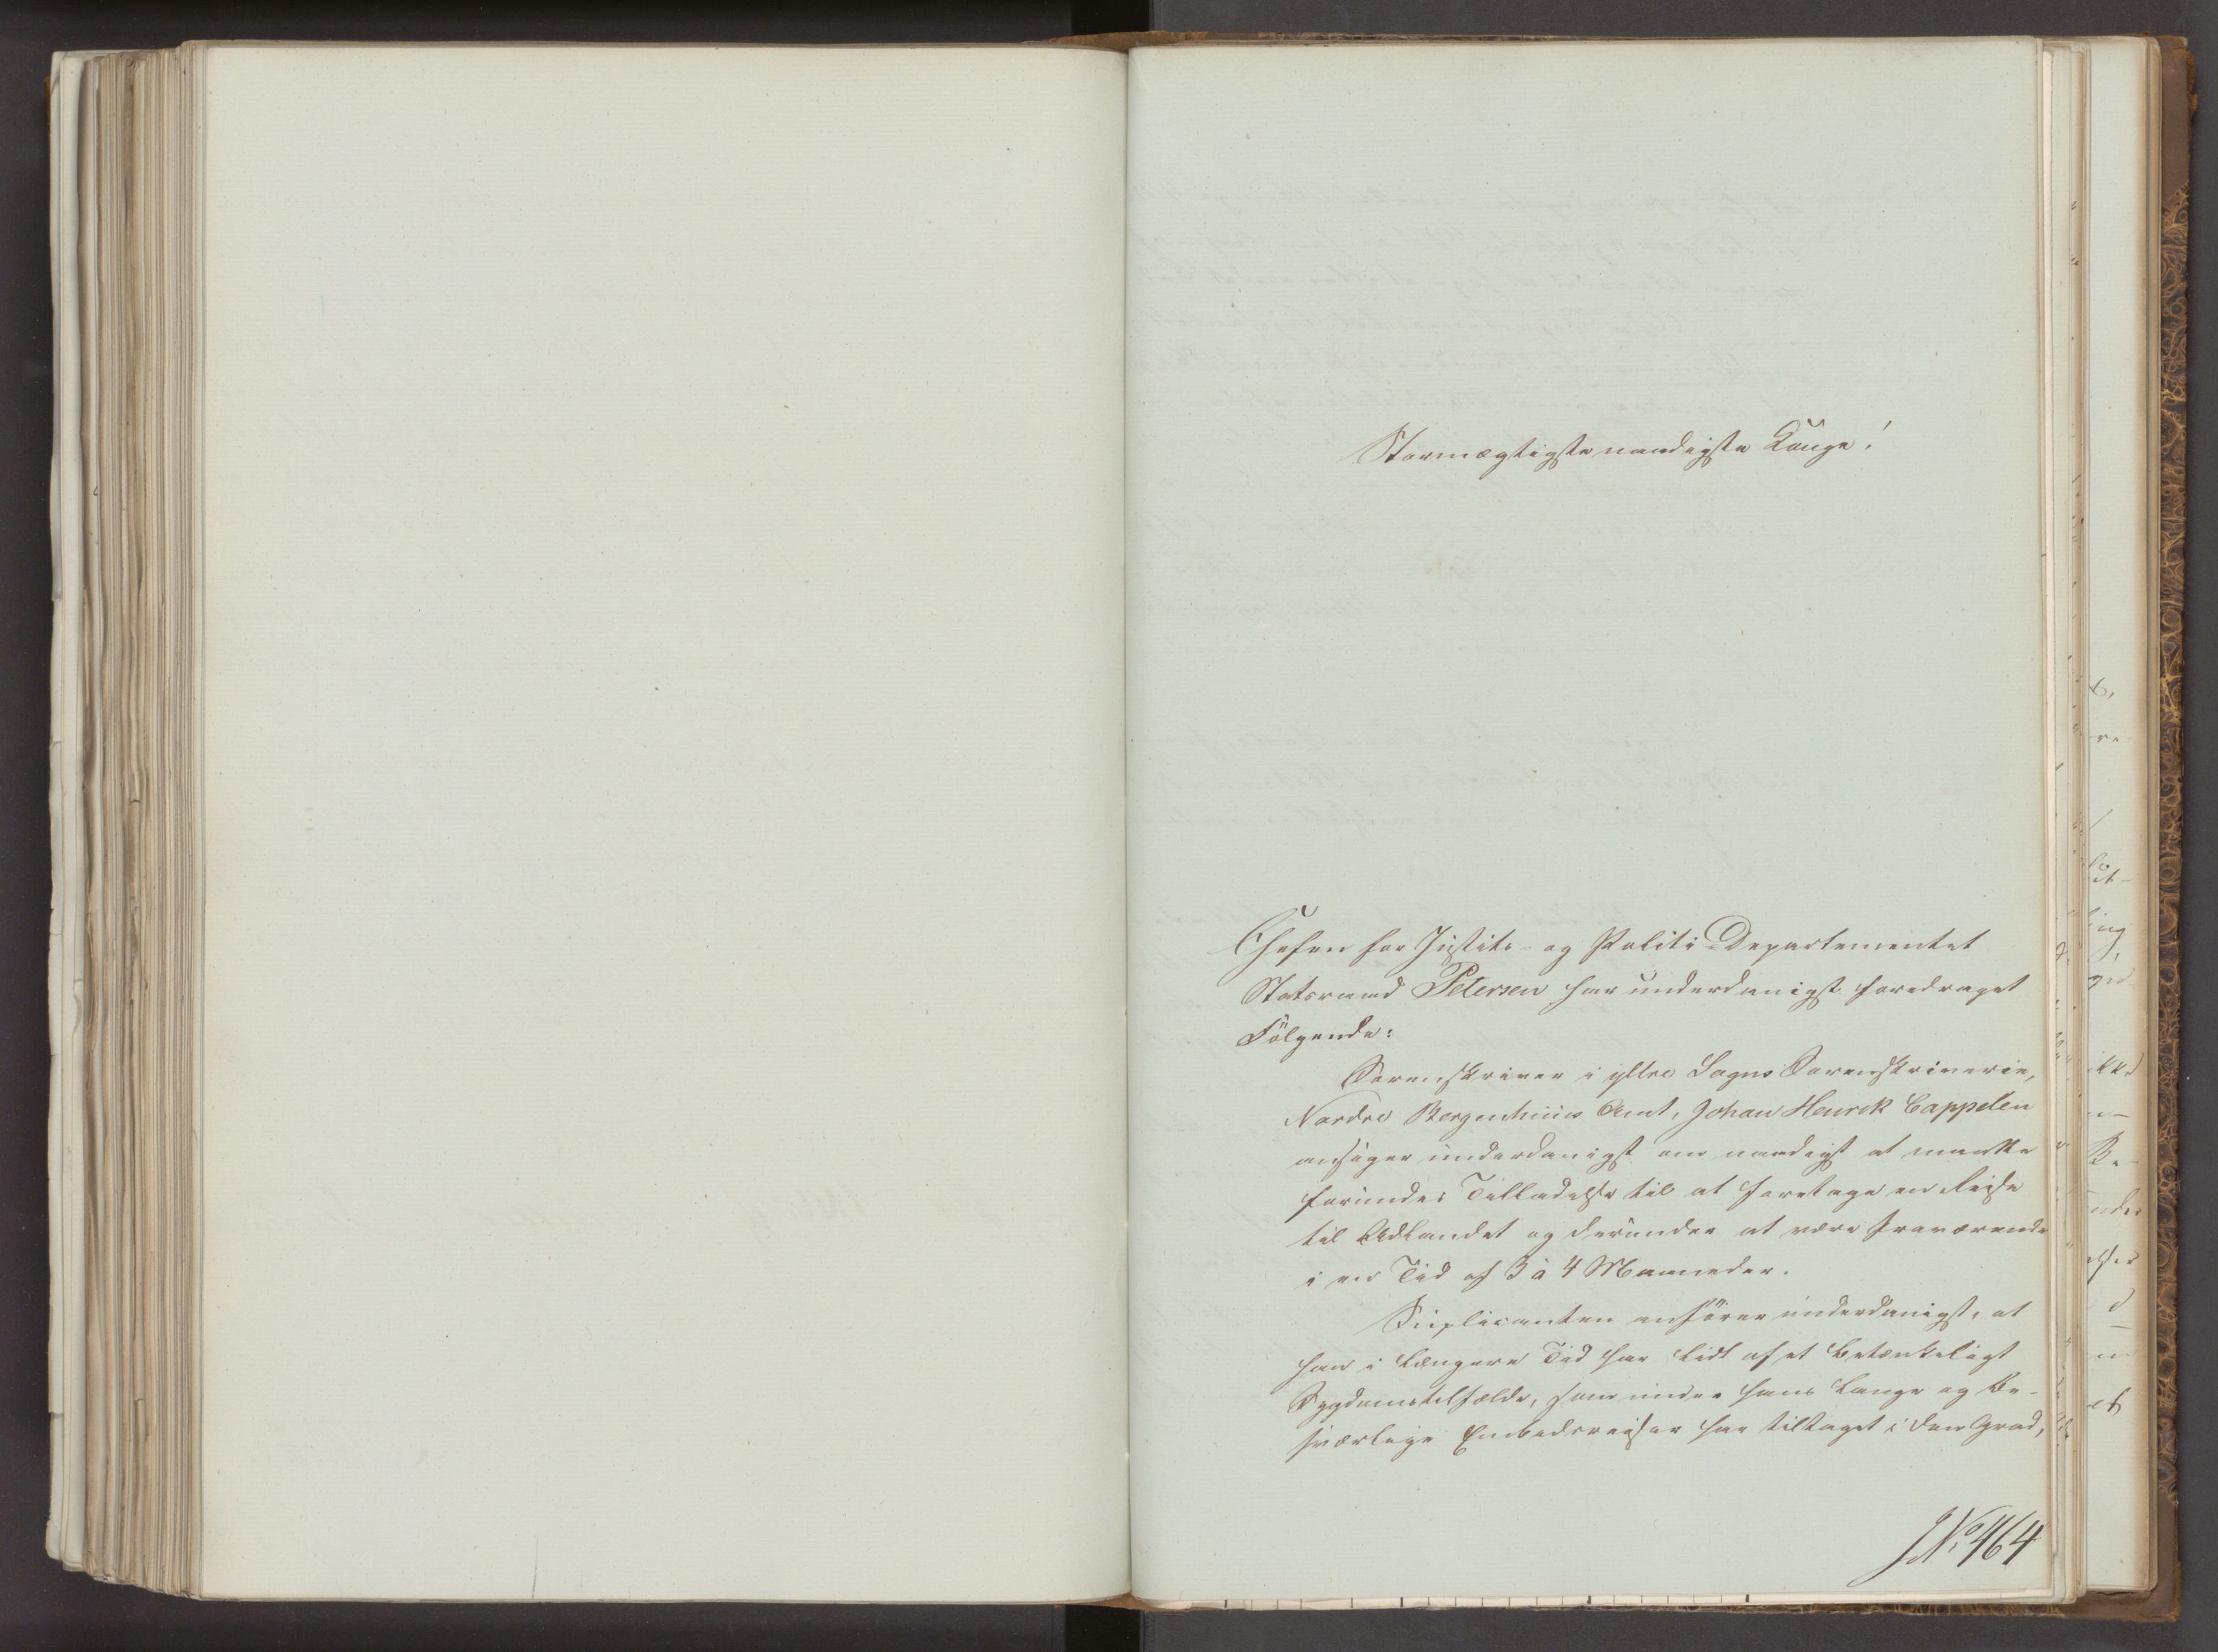 Stormægtigste naadigste Konge!
Chefen for Justits- og Politi-Departementet
Statsraad Petersen har underdanigst foredraget
Følgende:
Sorenskriver i yttre Sogns Sorenskriverie,
Nordre Bergenhuus Amt, Johan Henrik Cappelen
ansøger underdanigst om naadigst at maatte
forundes Tilladelse til at foretage en Reise
til Udlandet og derunder at være fraværende
i en Tid af 3 à 4 Maaneder.
Suplicanten anfører underdanigst, at
han i længere Tid har lidt af et betænkeligt
Sygdomstilfælde, som under hans lange og be-
sværlige Embedsreiser har tiltaget i den Grad,
J. No. 464